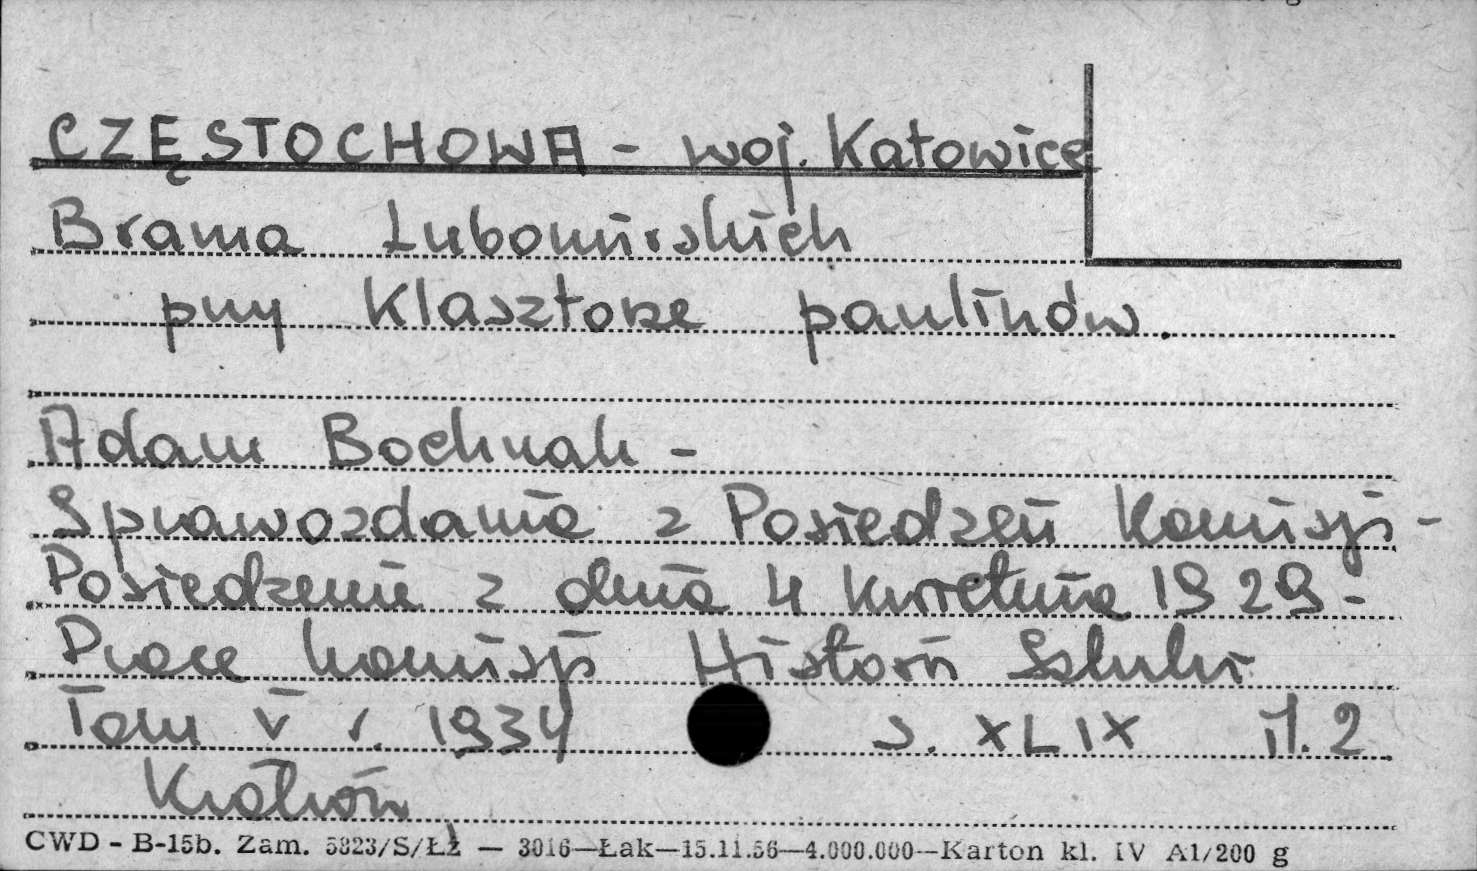 CZĘSTOCHOWA - woj. Katowice
Brama Lubomirskich
przy Klasztorze paulinów.
Adam Bochnak -
Sprawozdania z Posiedzeń Komisji -
Posiedzenie z dnia 4 kwietnia 1929 -
Prace Komisji Historii Sztuki
Tom V r. 1934 s. XLIX il. 2
Kraków
CWD - B-15b. Zam. 5823/S/ŁŻ — 3016—Łak—15.11.56—4.000.000—Karton kl. IV A1/200 g